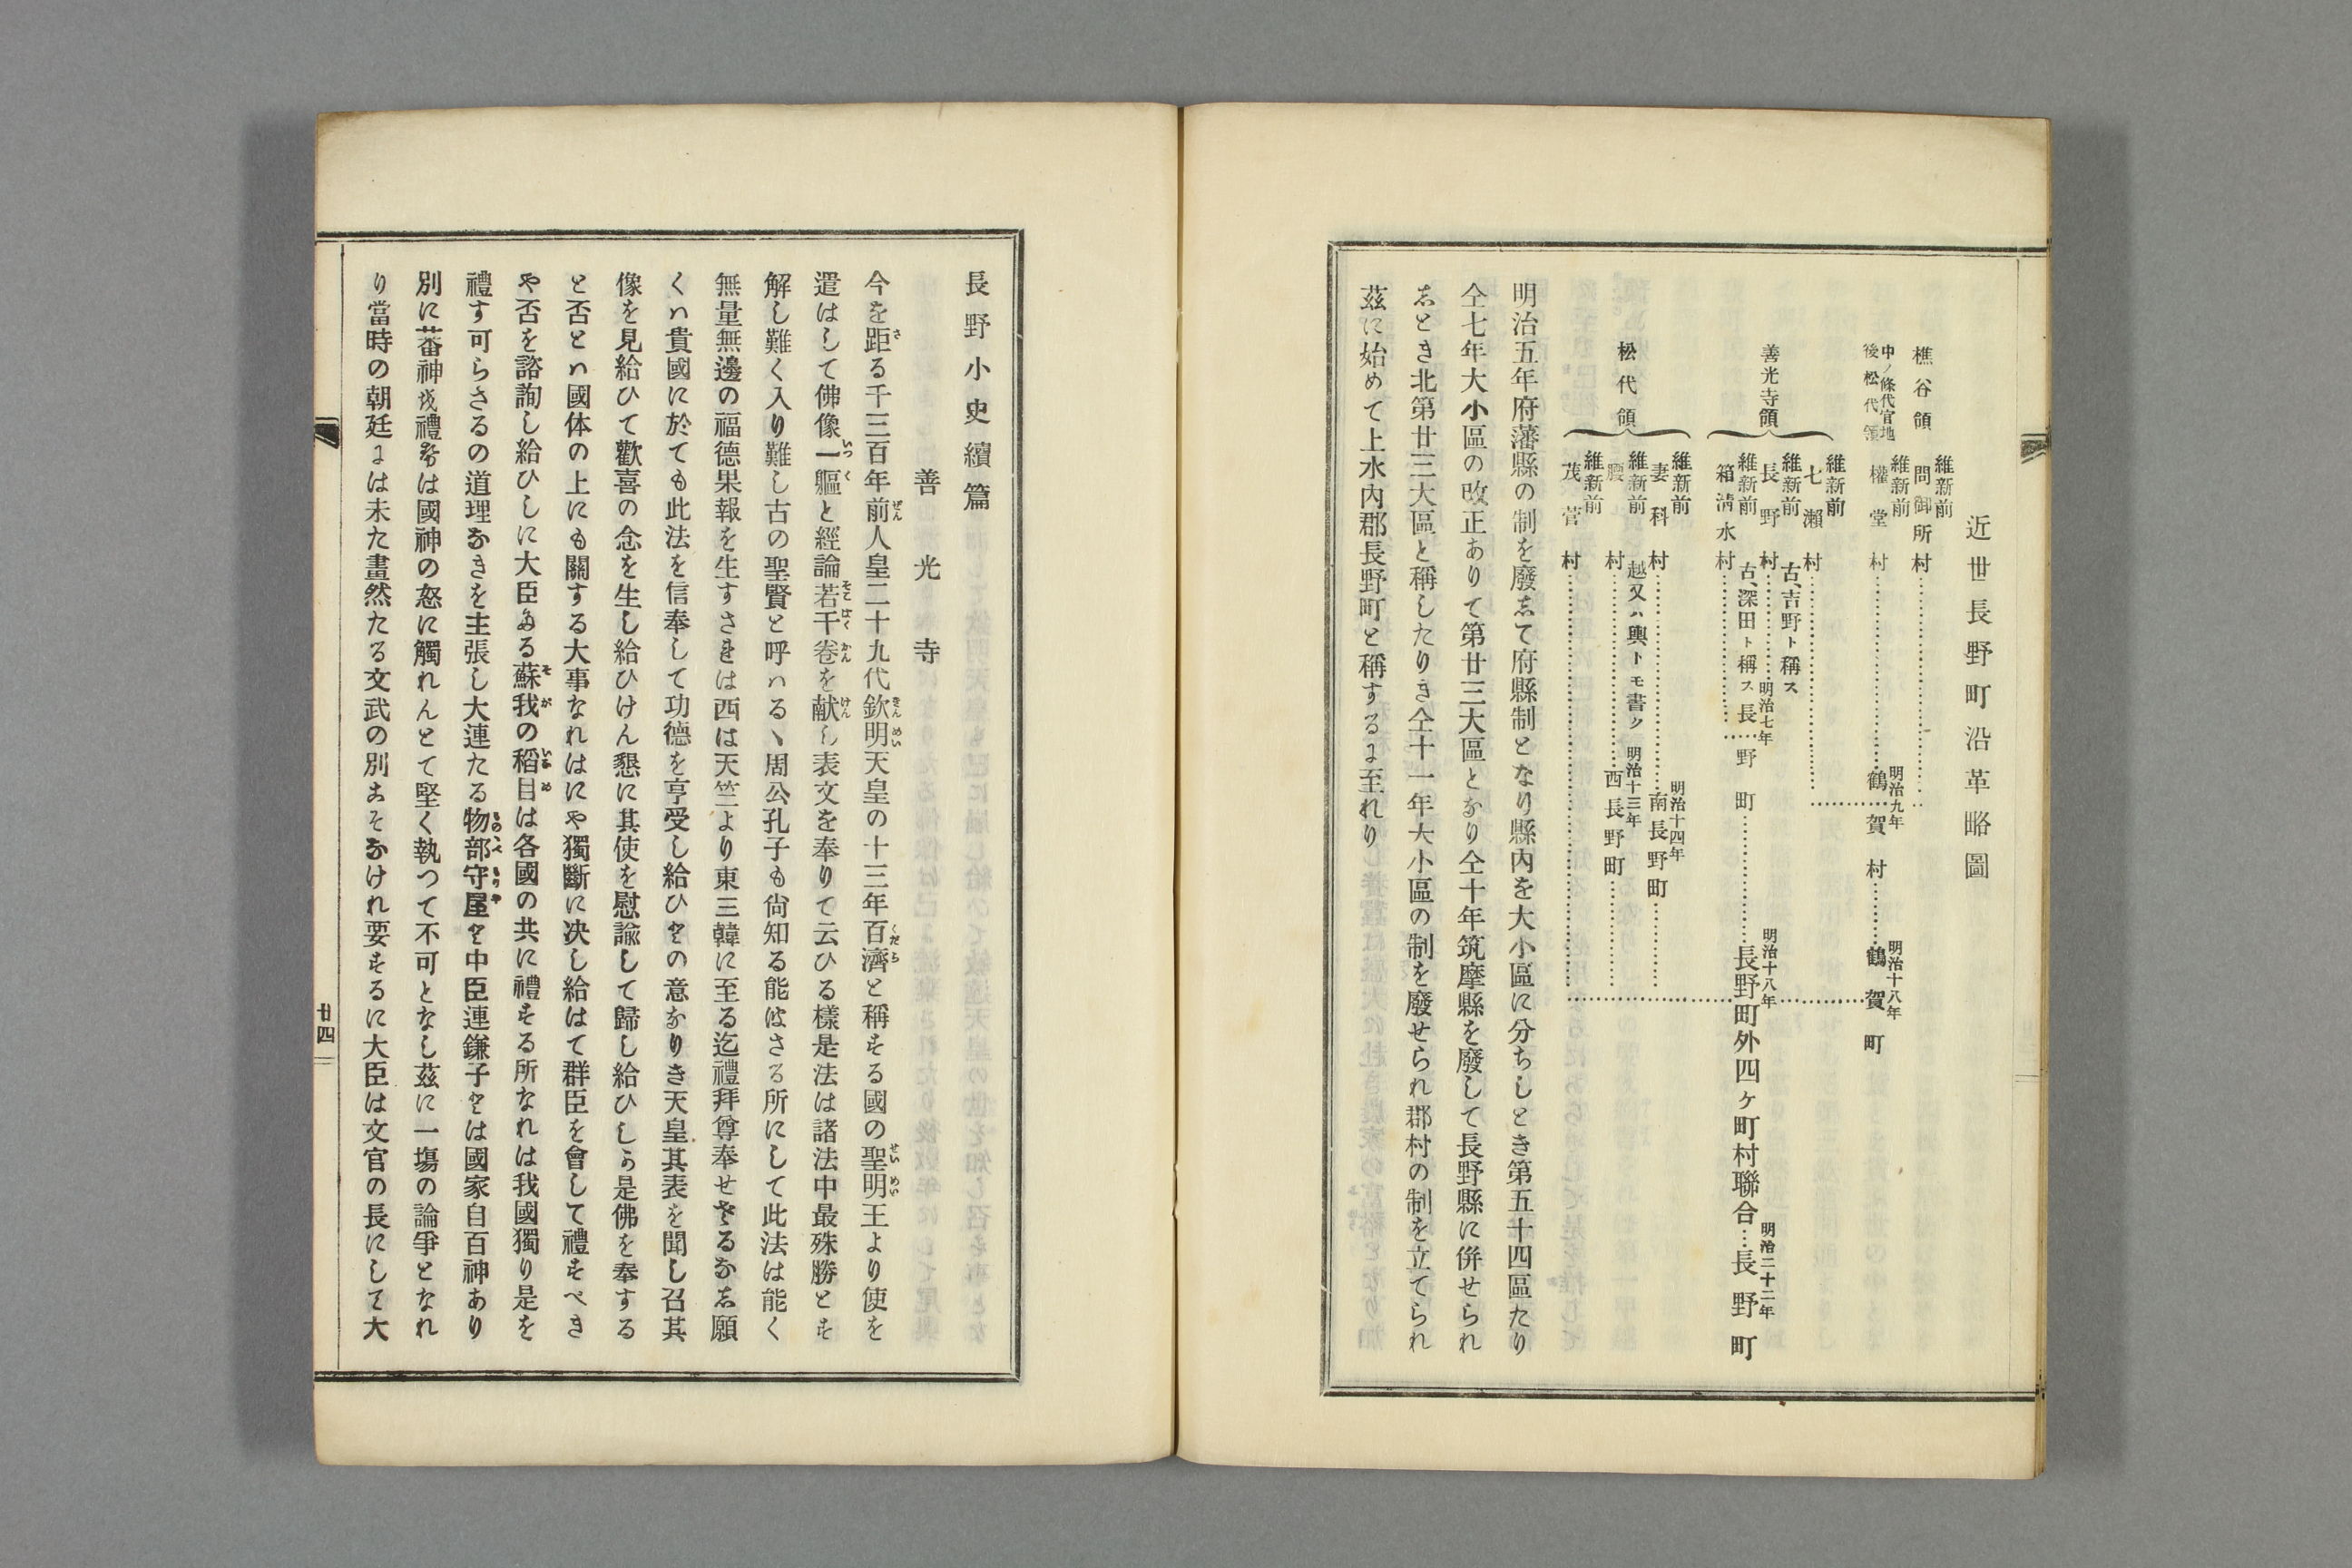 近世長野町沿革略圖
樵谷領
維新前
問御所村
中ノ條代官地
後松代領
維新前
權堂村
明治九年
鶴賀村
明治十八年
鶴賀町
善光寺領
維新前
七瀬村
維新前
長野村
古、吉野ト稱ス
明治七年
長野町
維新前
箱淸水村
古、深田ト稱ス
明治十八年
長野町外四ケ町村聯合
明治二十二年
長野町
松代領
維新前
妻科村
明治十四年
南長野町
維新前
腰村
越又ハ輿トモ書ク
明治十三年
西長野町
維新前
茂菅村
明治五年府藩縣の制を廢志て府縣制となり縣内を大小區に分ちしとき第五十四區たり
仝七年大小區の改正ありて第廿三大區となり仝十年筑摩縣を廢して長野縣に併せられ
志とき北第廿三大區と稱したりき仝十一年大小區の制を廢せられ郡村の制を立てられ
茲に始めて上水内郡長野町と稱するに至れり
長野小史續篇
善光寺
今を距る千三百年前人皇二十九代欽明天皇の十三年百濟と稱する國の聖明王より使を
遣はして佛像一軀と經論若干卷を献し表文を奉りて云ひる樣是法は諸法中最殊勝とす
解し難く入り難し古の聖賢と呼ハるヽ周公孔子も尙知る能はさる所にして此法は能く
無量無邊の福德果報を生すされは西は天竺より東三韓に至る迄禮拜尊奉せざるなし願
くハ貴國に於ても此法を信奉して功德を亨受し給ひとの意なりき天皇其表を聞し召其
像を見給ひて歡喜の念を生し給ひけん懇に其使を慰諭して歸し給ひしが是佛を奉する
と否とハ國体の上にも關する大事なれはにや獨斷に决し給はて群臣を會して禮すべき
や否を諮詢し給ひしに大臣なる蘇我の稻目は各國の共に禮する所なれは我國獨り是を
禮す可らさるの道理なきを主張し大連たる物部守屋と中臣連鎌子とは國家自百神あり
別に蕃神を禮せは國神の怒に觸れんとて堅く執つて不可となし茲に一塲の論爭となれ
り當時の朝廷には未た畫然たる文武の別こそなけれ要するに大臣は文官の長にして大
廿四